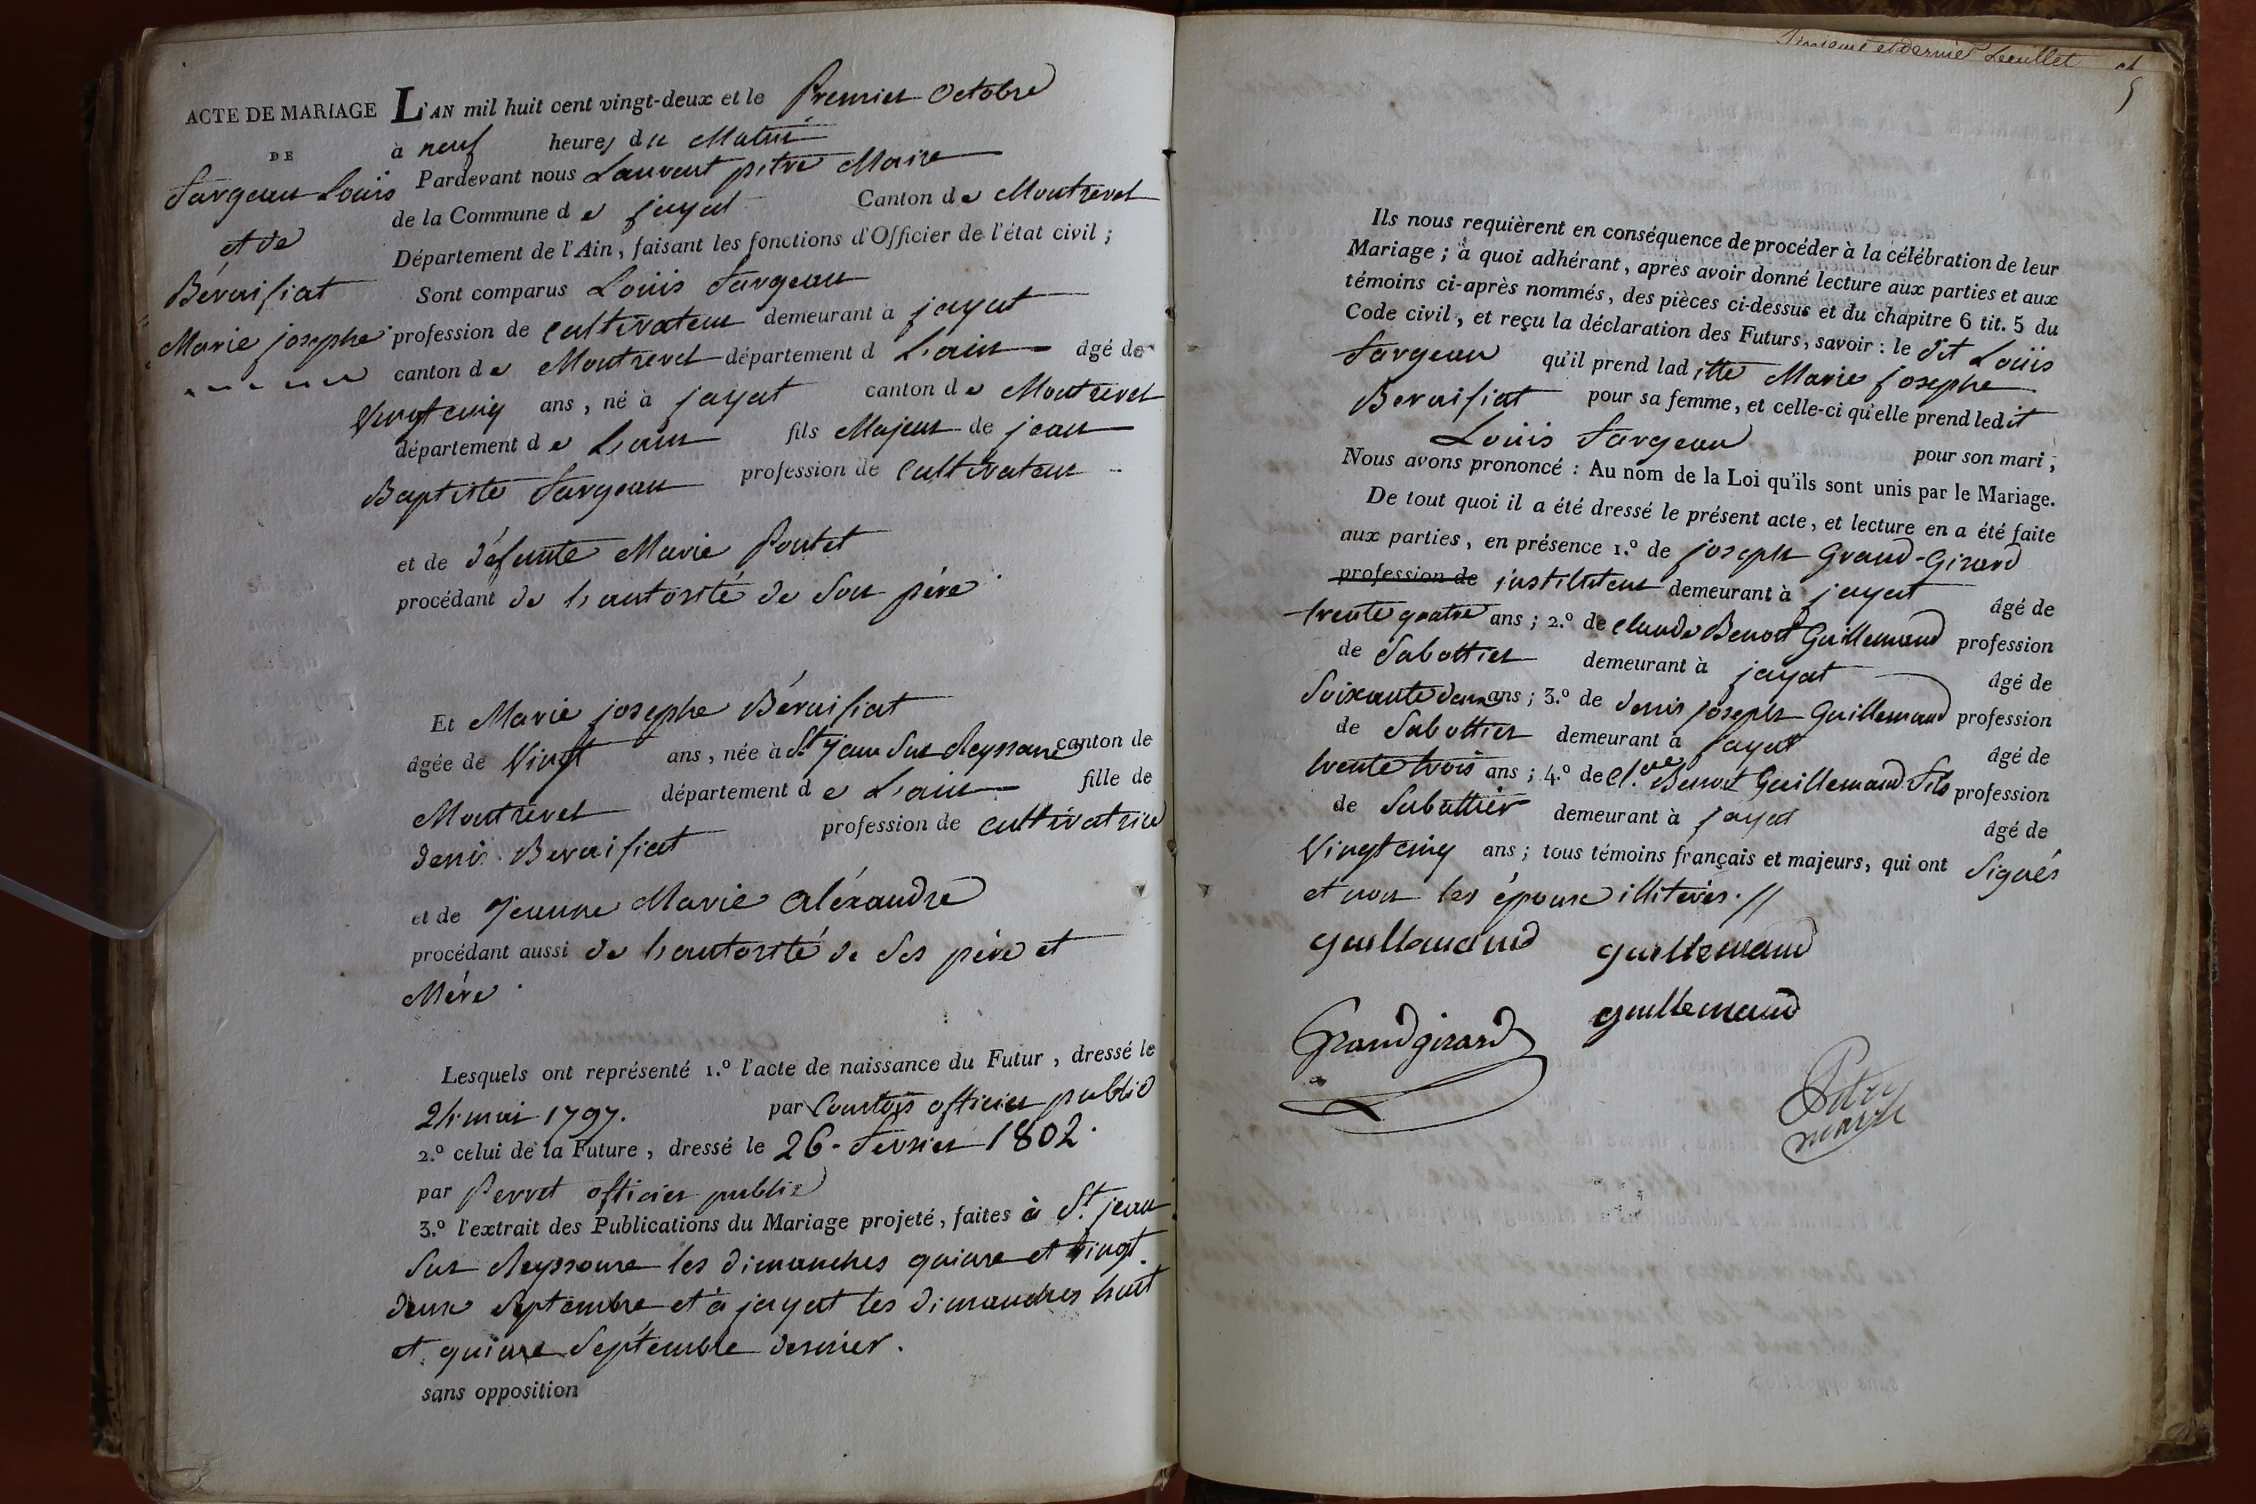 ACTE DE MARIAGE
DE
Fargeau Louis
et de
Béraifiat
Marie josephe
L'AN mil huit cent vingt-deux et le Premier Octobre
à neuf heures du Matin
Pardevant nous Laurent pitre Maire
de la Commune de jayat Canton de Montrevel
Département de l'Ain, faisant les fonctions d'Officier de l'état civil ;
Sont comparus Louis Fargeau
profession de cultivateur demeurant à jayat
canton de Montrevel département d L'ain âgé de
Vingt cinq ans, né à jayat canton de Montrevel
département de L'ain fils Majeur de jean
Baptiste Fargeau profession de cultivateur
et de défunte Marie Poutet
procédant de L'autorité de Son père.
Et Marie josephe Béraifiat
âgée de Vingt ans, née à St. jean Sur Reyssouze canton de
Montrevel département de L'ain fille de
denis Beraifiat profession de cultivatrice
et de jeanne Marie Aléxandre
procédant aussi de L'autorité de Ses père et
Mère.
Lesquels ont représenté 1.º l'acte de naissance du Futur, dressé le
24 mai 1797. par Courtois officier public
2.º celui de la Future, dressé le 26 - fevrier 1802.
par Perret officier public
3.º l'extrait des Publications du Mariage projeté, faites à St. jean
Sur Reyssouze les dimanches quinze et vingt
deux Septembre et à jayat les dimanches huit
et quinze Septembre dernier.
sans opposition
et dernier feuillet
5
Ils nous requièrent en conséquence de procéder à la célébration de leur
Mariage ; à quoi adhérant, après avoir donné lecture aux parties et aux
témoins ci-après nommés, des pièces ci-dessus et du chapitre 6 tit. 5 du
Code civil, et reçu la déclaration des Futurs, savoir : le dit Louis
Fargeau qu'il prend laditte Marie josephe
Beraifiat pour sa femme, et celle-ci qu'elle prend ledit
Louis Fargeau pour son mari ;
Nous avons prononcé : Au nom de la Loi qu'ils sont unis par le Mariage.
De tout quoi il a été dressé le présent acte, et lecture en a été faite
aux parties, en présence 1.º de joseph Grand-Girard
profession de instituteur demeurant à jayat âgé de
trente quatre ans ; 2.º de claude Benoit Guillemaud profession
de Sabottier demeurant à jayat âgé de
Soixante deux ans ; 3.º de denis joseph Guillemaud profession
de Sabottier demeurant à jayat âgé de
trente trois ans ; 4.º de Cl.de Benoit Guillemaud fils profession
de Sabottier demeurant à jayat âgé de
Vingt cinq ans ; tous témoins français et majeurs, qui ont Signés
et non les époux illiterés.//
guillemaud guillemaud
guillemaud
Grandgirard
Pitre
maire